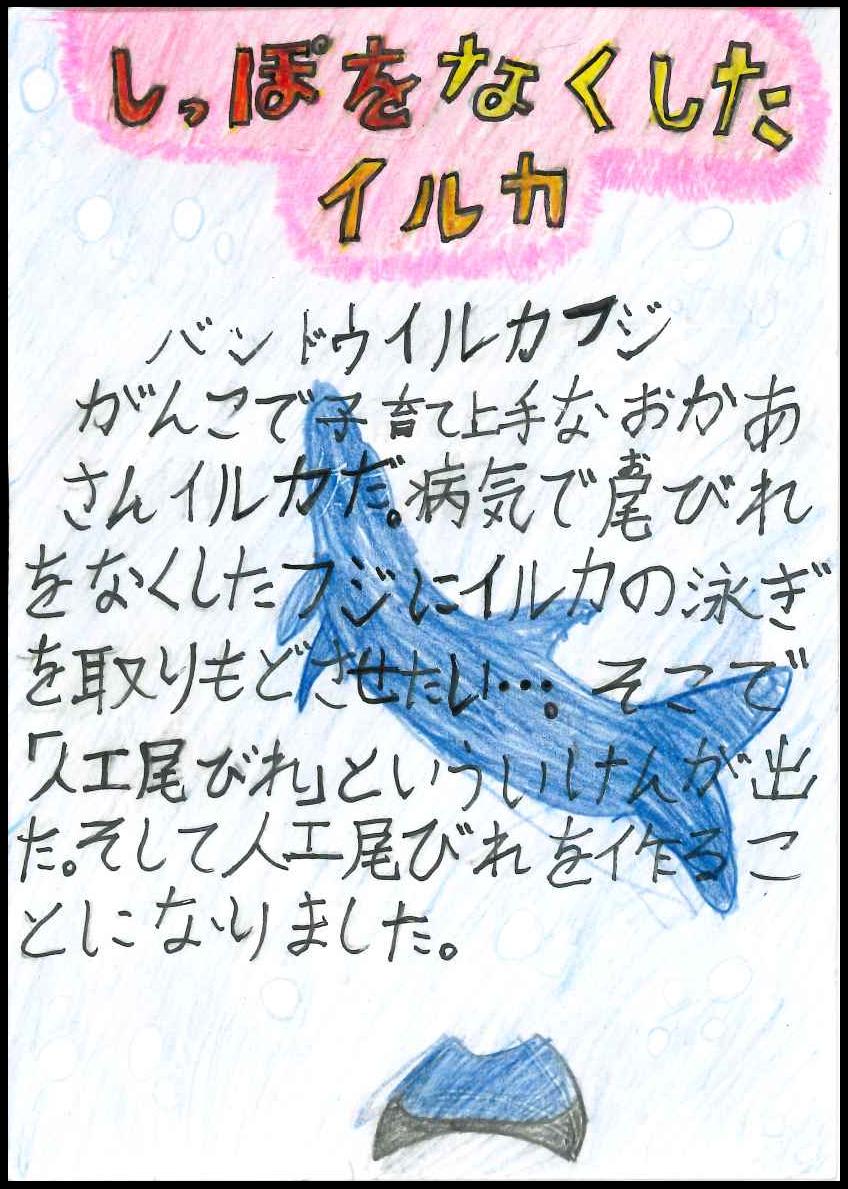 しっぽをなくした
イルカ
バンドウイルカフジ
がんこで子育て上手なおかあ
さんイルカだ。病気で尾びれ
お
をなくしたフジにイルカの泳ぎ
を取りもどさせたい…。そこで
「人工尾びれ」といういけんが出
た。そして人工尾びれを作るこ
とになりました。